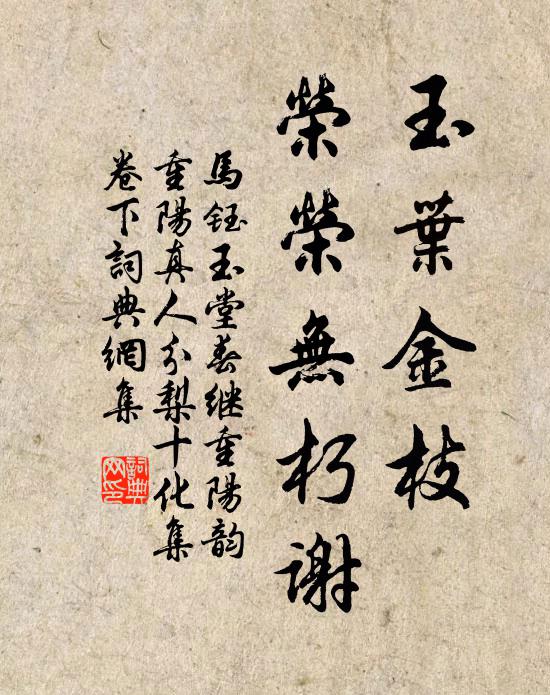 玉葉金枝
榮榮無朽謝
馬鈺玉堂春继重陽韵
重陽真人分梨十化集
卷下詞典網集
詞典网印